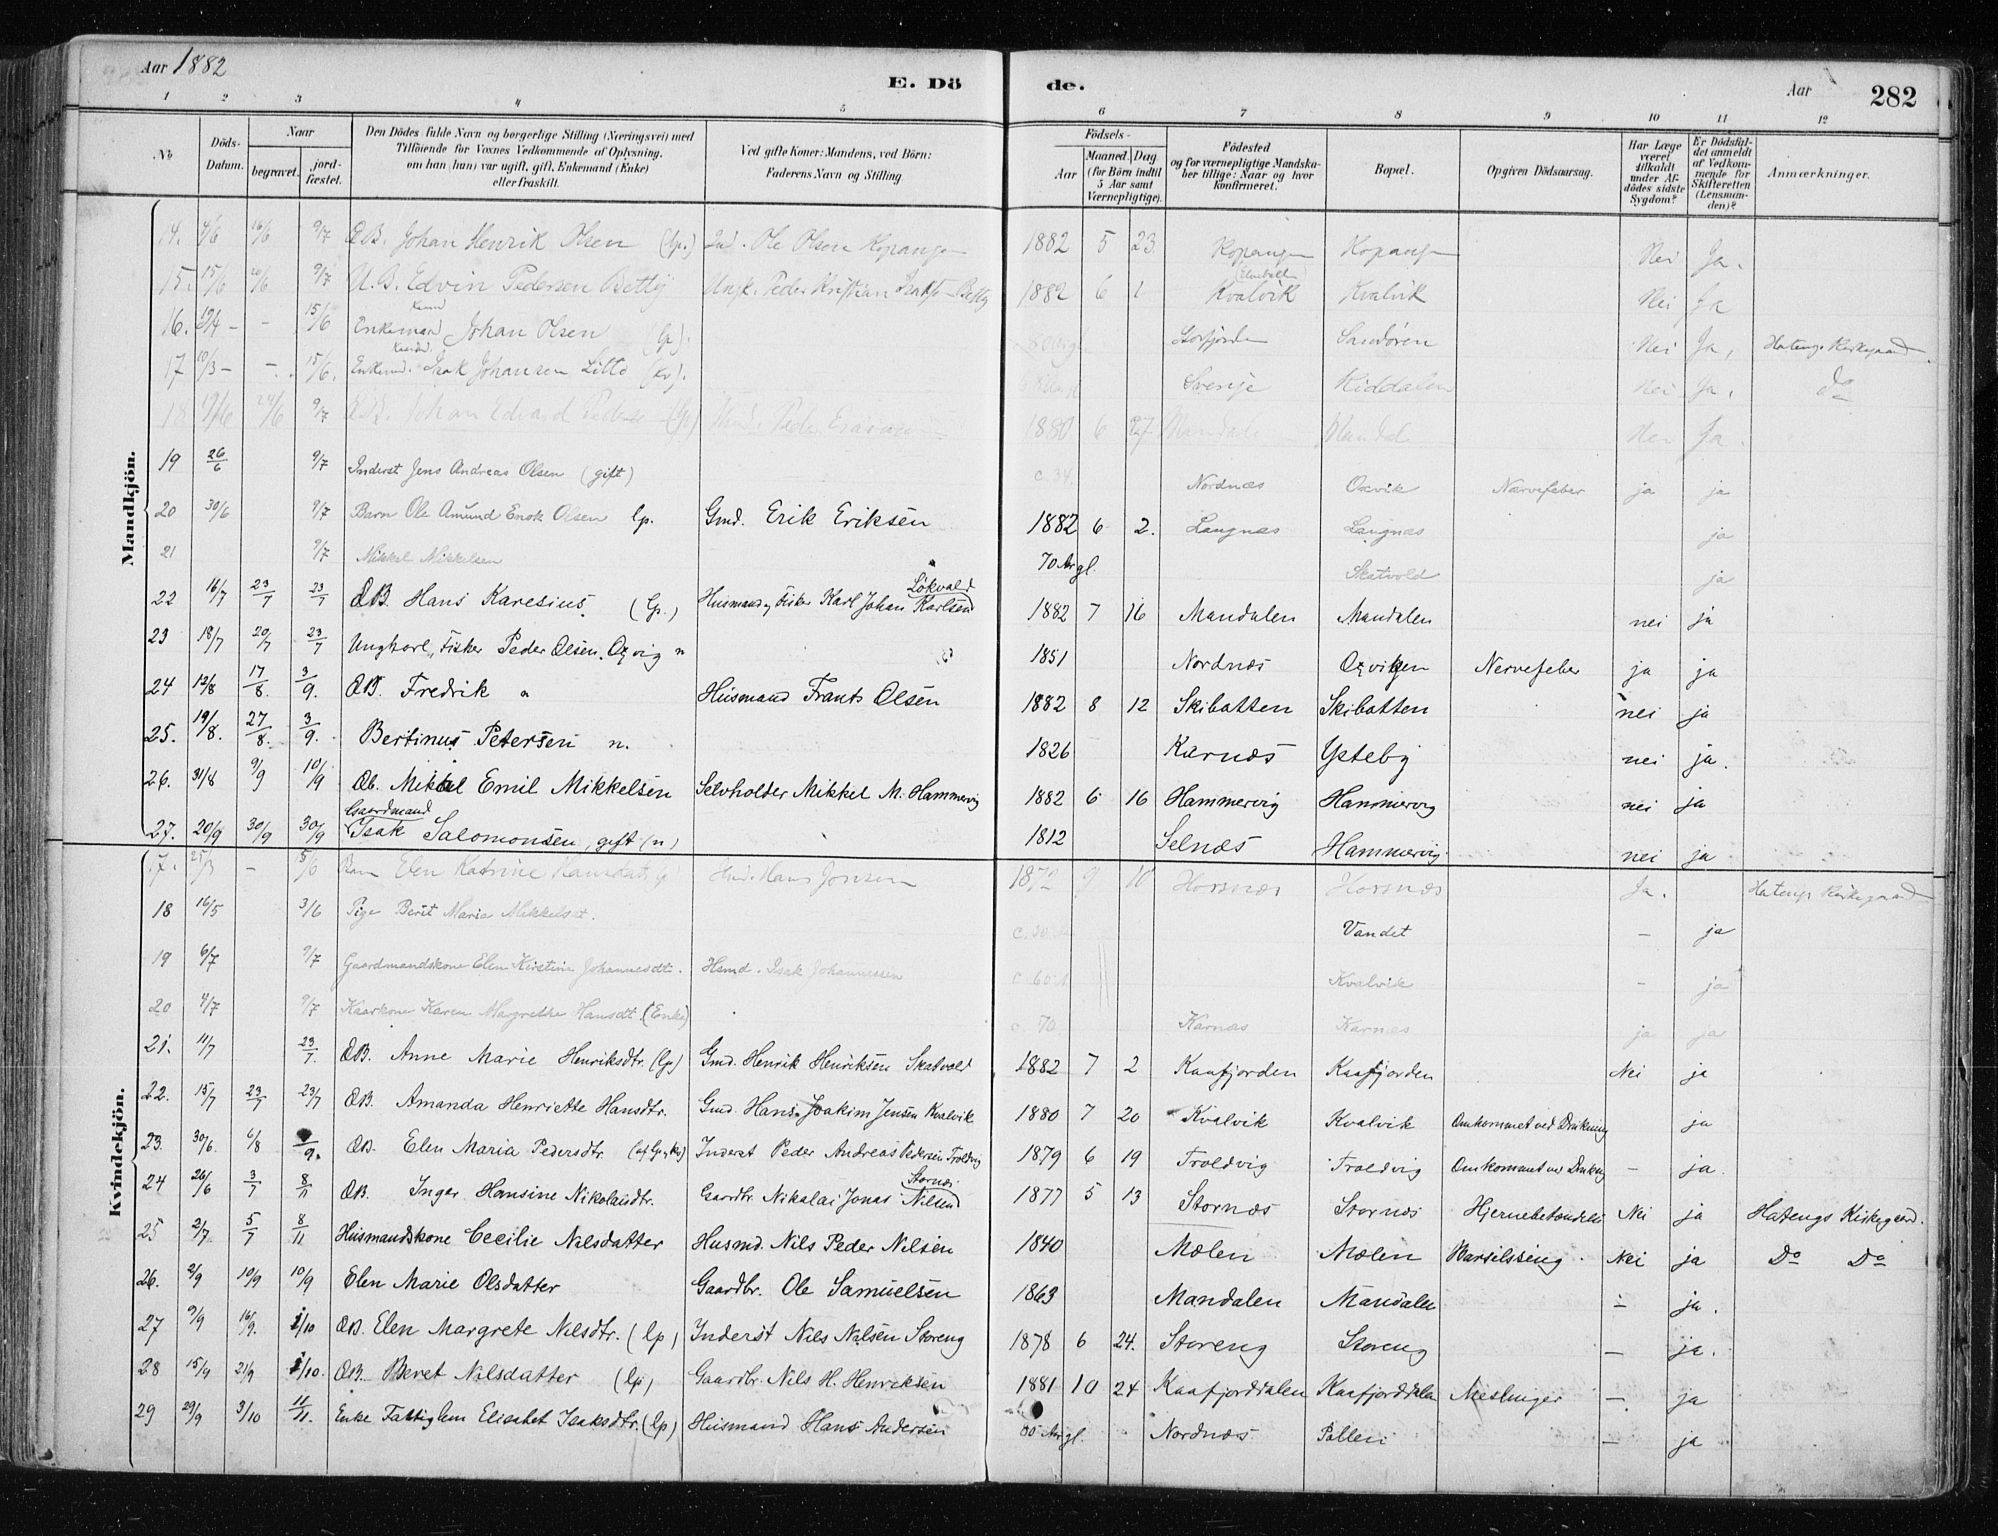 Aar 1882 E. Dö de. Aar 282
1 2 3 4 5 6 7 8 9 10 11 12
No Döds-Datum. Naar begravet. jord-fæstet. Den Dödes fulde Navn og borgerlige Stilling (Næringsvei) med Tilföiende for Voxnes Vedkommende af Oplysning, om han (hun) var ugift, gift, Enkemand (Enke) eller fraskilt. Ved gifte Koner: Mandens, ved Börn: Faderens Navn og Stilling. Födsels- Aar Maaned. Dag. (for Börn indtil 5 Aar samt Værnepligtige). Födested og for værnepligtige Mandskaber tillige: Naar og hvor konfirmeret. Bopæl. Opgiven Dödsaarsag. Har Læge været tilkaldt under Afdödes sidste Sygdom? Er Dödsfaldet anmeldt af Vedkommende for Skifteretten (Lensmanden)? Anmærkninger.
Mandkjön.
14. 4/6 16/6 9/7 Johan Henrik Olsen (lp.) Ole Olsen Kopangen 1882 5 23 Kopangen Kopangen Nei Ja.
15. 15/6 20/6 9/7 U.B. Edvin Pedersen Betty Ungk. Peder Kristian 1882 6 1 Kvalvik Kvalvik Nei Ja
16. - - 15/6 Enkemand Johan Olsen (lp). Storfjorden Sandören Nei Ja, Hatengs Kirkegaard
17 10/3 - - 15/6. Enkemd. Isak Johansen Litto (kv). Sverje Kiddalen Nei Ja, do
18 19/6 24/6 9/7 Johan Edvard (lp) Peder 1880 6 27 Nei Ja.
19 26/6 9/7 Inderst Jens Andreas Olsen (gift) c. 34. Nordnæs Oxvik Nervefeber ja ja
20 30/6 9/7 Barn Ole Amund Enok Olsen lp. Gmd. Erik Eriksen 1882 6 2. Langnæs Langnæs ja
21 9/7 Mikkel Mikkelsen 70 Aar gl. Skatvold ja
22 16/7 23/7 23/7 ÆB. Hans Karesius (lp.) Husmand og Fisker Karl Johan Karlsen Lökvold 1882 7 16 Mandalen Mandalen nei ja
23 18/7 20/7 23/7 Ungkarl, Fisker Peder Olsen Oxvig n 1851 Nordnæs Oxviken Nervefeber ja ja
24 12/8 17/8. 3/9. ÆB. Fredrik n Husmand Frants Olsen 1882 8 12 Skibotten Skibotten nei ja
25. 19/8. 27/8. 3/9. Bertinus Petersen n. 1826 Karnæs Ysteby nei ja.
26. 31/8 9/9 10/9 Æb. Mikal Emil Mikkelsen Selvholder Mikkel M. Hammervig 1882 6 16 Hammervig Hammervig nei ja
27. 20/9 30/9 30/9 Gaardmand Isak Salomonsen, gift (n) 1812 Selnæs Hammervig nei ja
Kvindekjön.
17. - 5/6 Elen Katrine Hansdat. Hans Jonsen 1872 9 10 Horsnæs Horsnæs Ja. Hatengs Kirkegaard
18 16/5 3/6 Pige Berit Maria Mikkelsdt. Vandet - ja
19 6/7 9/7 Gaardmandskone Elen Kirstine Johannesdt. Hsmd. Isak Johannessen c. 60 Kvalvik - ja
20 4/7 9/7 Kaarkone Karen Margrethe Hansdt. (Enke) c. 70 Karnæs Karnæs ja ja
21. 11/7 23/7. ÆB. Anne Marie Henriksdtr. (lp) Gmd. Henrik Henriksen Skatvold 1882 7 2 Kaafjorden Kaafjorden Nei ja
22. 15/7 23/7 23/7 ÆB. Amanda Henriette Hansdtr. Gmd. Hans Joakim Jensen Kvalvik 1880 7 20 Kvalvik Kvalvik Omkommet ved Drukning ja
23. 30/6. 6/8 /9. ÆB. Elen Maria Pedersdtr. Inderst Peder Andreas Pedersen Troldvig 1879 6 19 Troldvig Troldvig Omkommet ved Drukng - ja.
24 26/6 3/7 8/11 ÆB. Inger Hansine Nikolaidtr. Gaardbr. Nikolai Jonas Nilsen Stornæs 1877 5 13 Stornæs Stornæs Hjernebetændelse Nei ja Hatengs Kirkegaard.
25 2/7 5/7 8/11 Husmandskone Cecilie Nilsdatter Husmd. Nils Peder Nilsen 1840 Mælen Mælen Barselseng. Nei ja Do Do
26. 2/9 10/9 10/9 Elen Marie Olsdatter Gaardbr. Ole Samuelsen 1863 Mandalen Mandalen - ja.
27 9/9 16/9. 1/10 ÆB. Elen Margrete Nilsdtr. (lp) Inderst Nils Nilsen Storeng 1878 6 24. Storeng Storeng - ja.
28 15/9 21/9 1/10. ÆB. Beret Nilsdatter (lp) Gaardbr. Nils H. Henriksen 1881 10 24 Kaafjorddalen Kaafjorddalen Meslinger - ja
29 29/9 3/10 11/11. Enke Fattiglem Elisabet Isaksdtr. (lp) Husmand Hans Andersen Aar gl. Nordnæs Pollen - ja